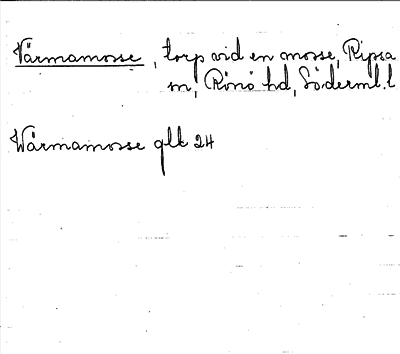 Värmamosse, torp vid en mosse, Ripsa
sn, Rönö hd, Söderml. l
Wärmamosse glk 24